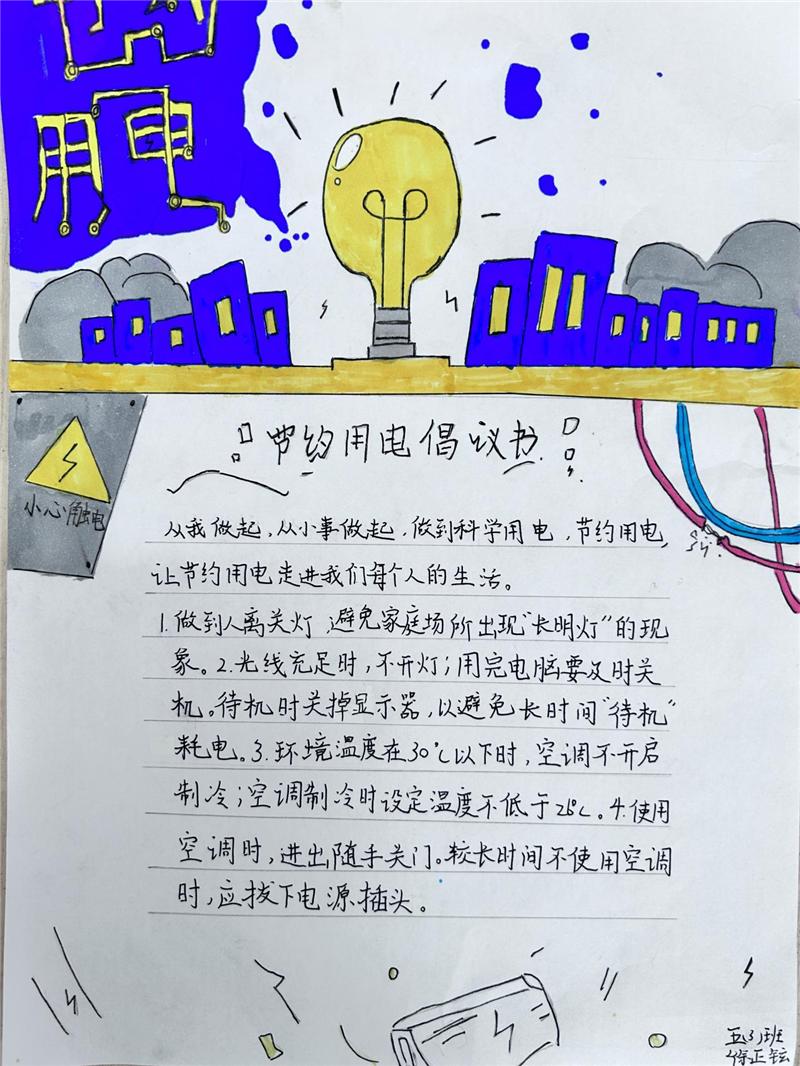 用电
节约用电倡议书
小心触电
从我做起,从小事做起,做到科学用电,节约用电,
让节约用电走进我们每个人的生活。
1.做到人离关灯,避免家庭场所出现“长明灯”的现
象。2.光线充足时,不开灯;用完电脑要及时关
机。待机时关掉显示器,以避免长时间“待机”
耗电。3.环境温度在30℃以下时,空调不开启
制冷;空调制冷时设定温度不低于28℃。4.使用
空调时,进出随手关门。较长时间不使用空调
时,应拔下电源插头。
五(3)班
正铉